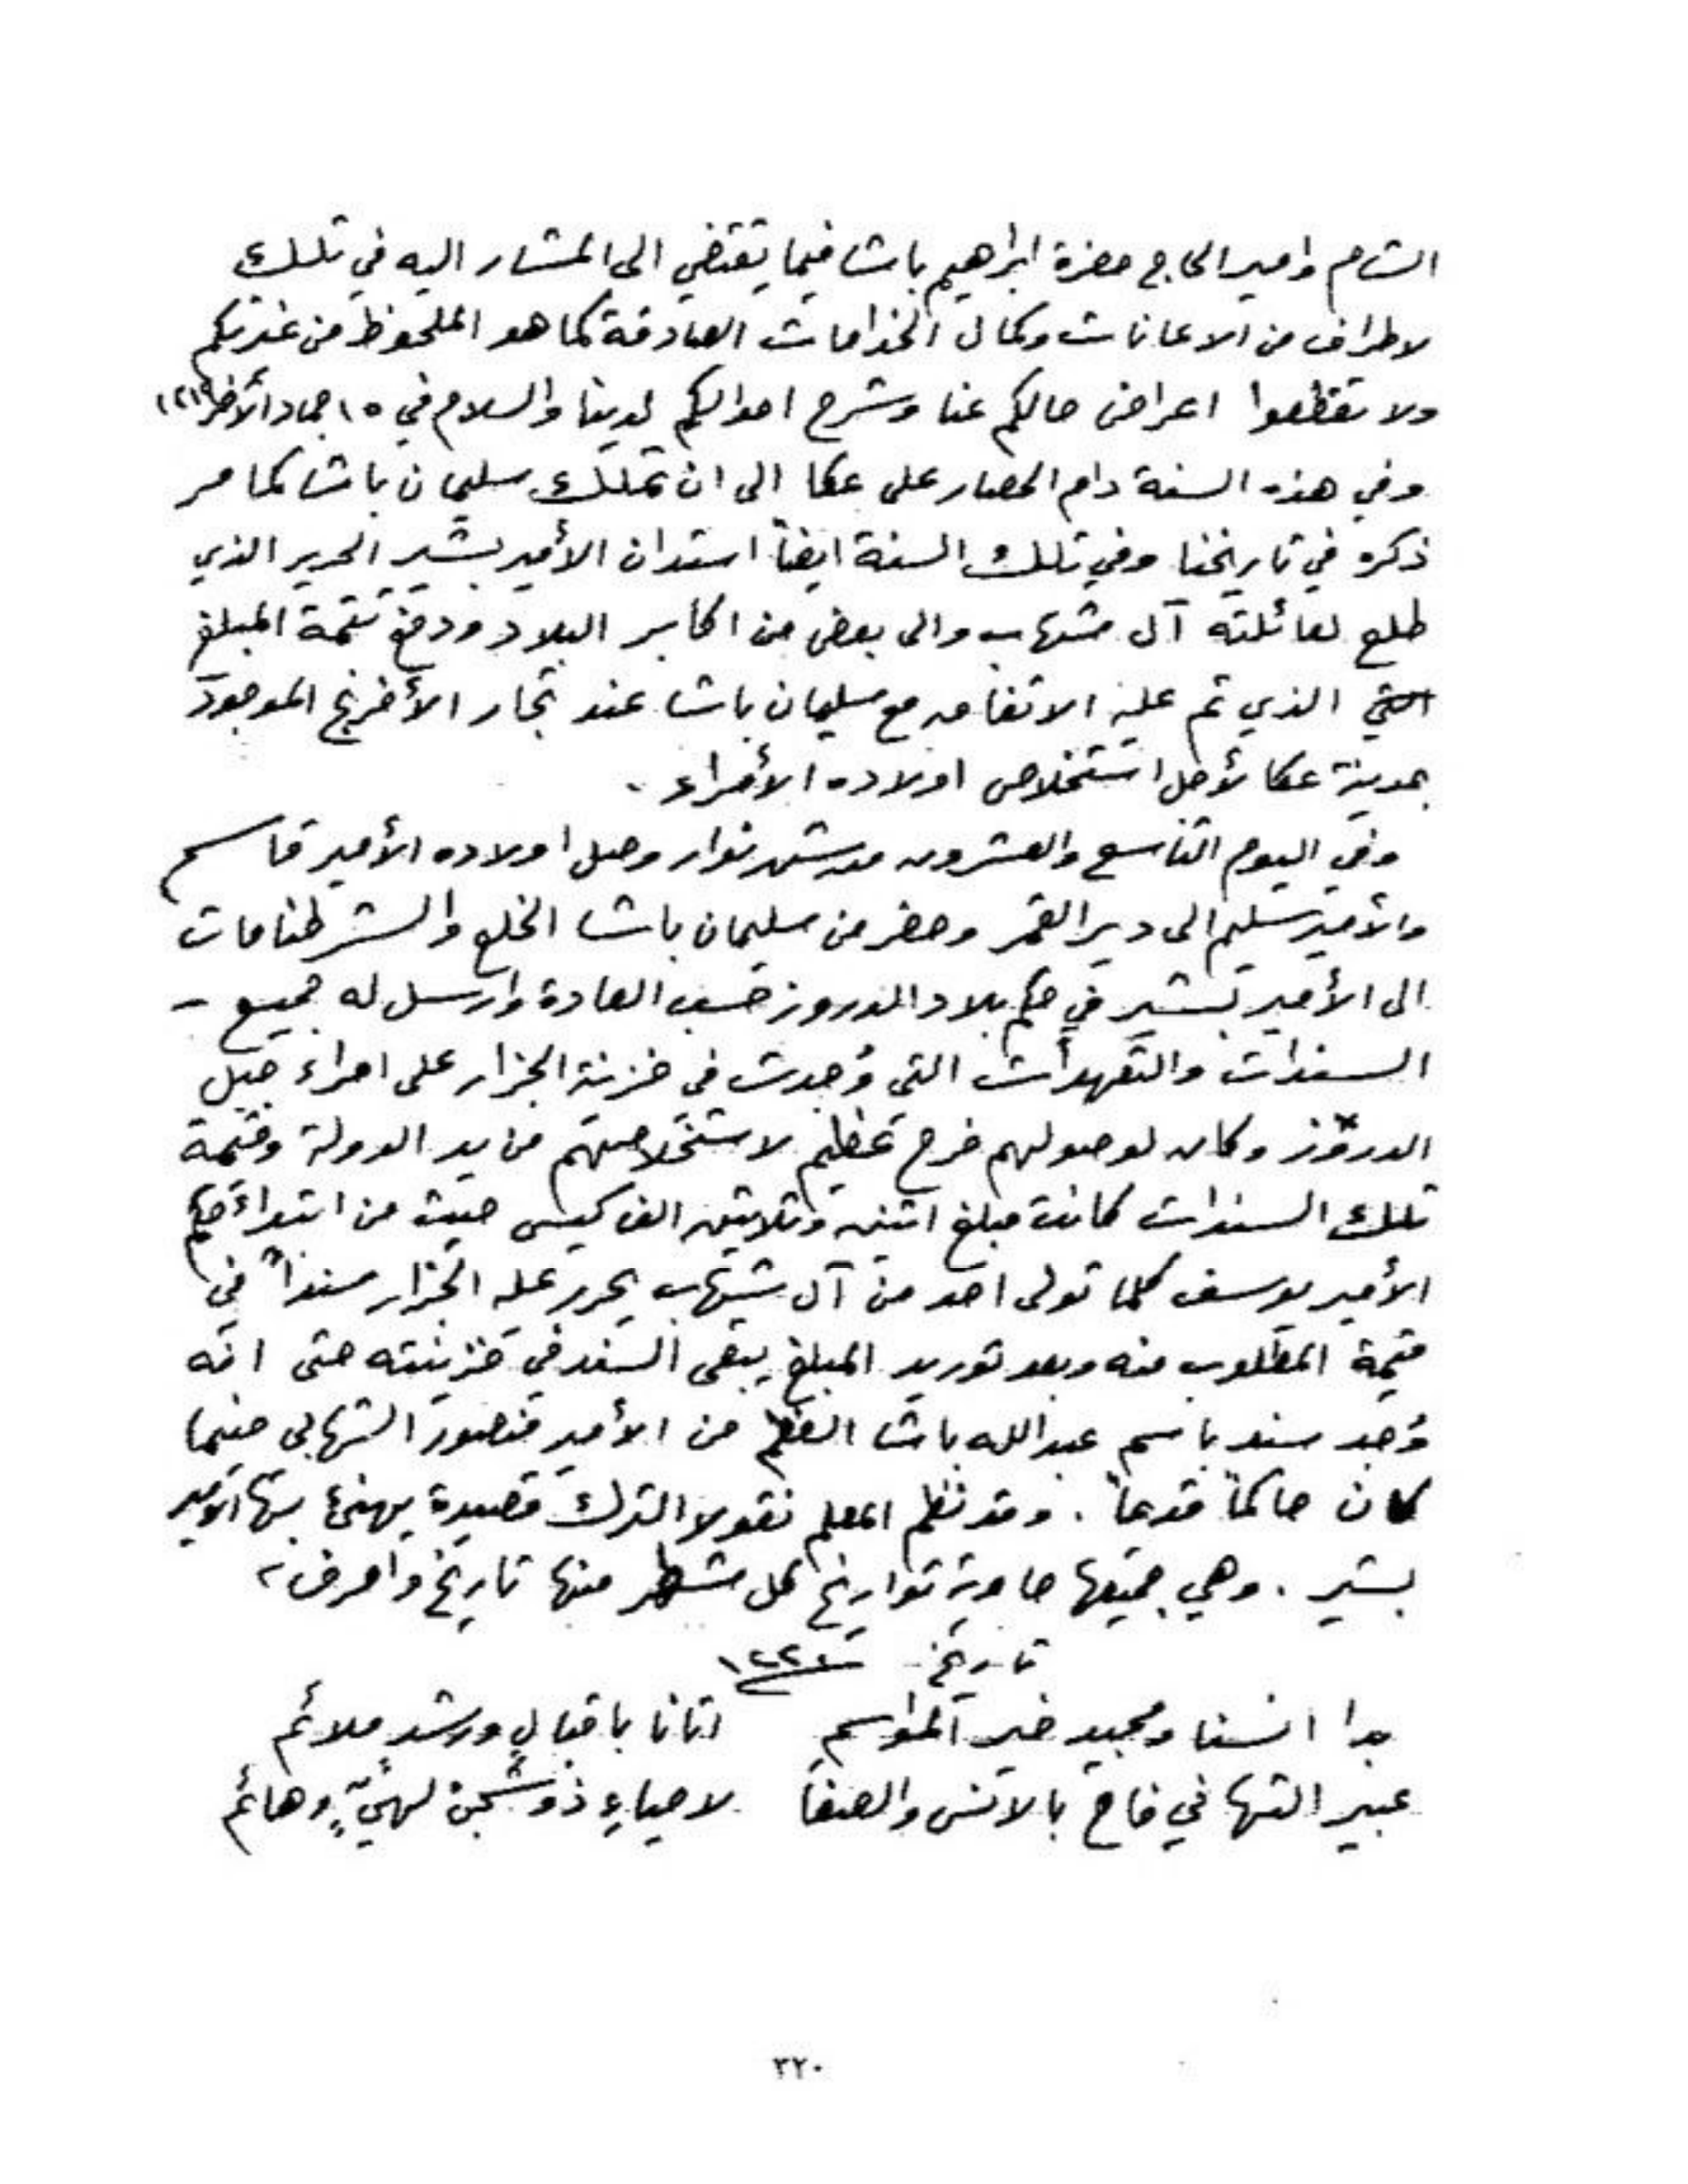 الشام وامير الحاج حضرة ابراهيم باشا فيما يقتضي الى المشار اليه في تلك
لاطراف من الاعانات وكمال الخدامات الصادقة كما هو الملحوظ من غيرتكم
ولا تقطعوا اعراض حالكم عنا وشرح احوالكم لدينا والسلام في ١٥ جماد الأخر
وفي هذه السنة دام الحصار على عكا الى ان تملك سليمان باشا كما مر
ذكره في تاريخنا وفي تلك السنة ايضاً استدان الأمير بشير الحرير الذي
طلع لعائلته آل شهاب والى بعض من اكابر البلاد ودفع تتمة المبلغ
الذي تم عليه الاتفاق مع سليمان باشا عند تجار الأفرنج الموجود
بمدينة عكا لأجل استخلاص اولاده الأمراء .
وفي اليوم التاسع والعشرون من شهر نوار وصل اولاده الأمير قاسم
والأمير سليم الى دير القمر وحضر من سليمان باشا الخلع والشرطنامات
الى الأمير بشير في حكم بلاد الدروز حسب العادة وارسل له جميع -
السندات والتعهدات التي وُجدت في خزينة الجزار على امراء جبل
الدروز وكان لوصولهم فرح عظيم لاستخلاصهم من يد الدولة وقيمة
تلك السندات كانت مبلغ اثنين وثلاثين الف كيس حيث من ابتداء حكم
الأمير يوسف كلما تولى احد من آل شهاب يحرر عليه الجزار سنداً في
قيمة المطلوب منه وبعد توريد المبلغ يبقى السند في خزينته حتى انه
وُجد سند باسم عبدالله باشا العظم من الأمير منصور الشهابي حينما
كان حاكماً قديماً . وقد نظم المعلم نقولا الترك قصيدة يهنئ بها الأمير
بشير . وهي جميعها حاوية تواريخ كل شطر منها تاريخ
تاريخ
بدا انسنا ومجيد خير المواسم اتانا باقبالٍ ورشدٍ ملائم
عبير التهاني فاح بالانس والصفا لاحياءِ ذو شجن وهائم
٣٢٠